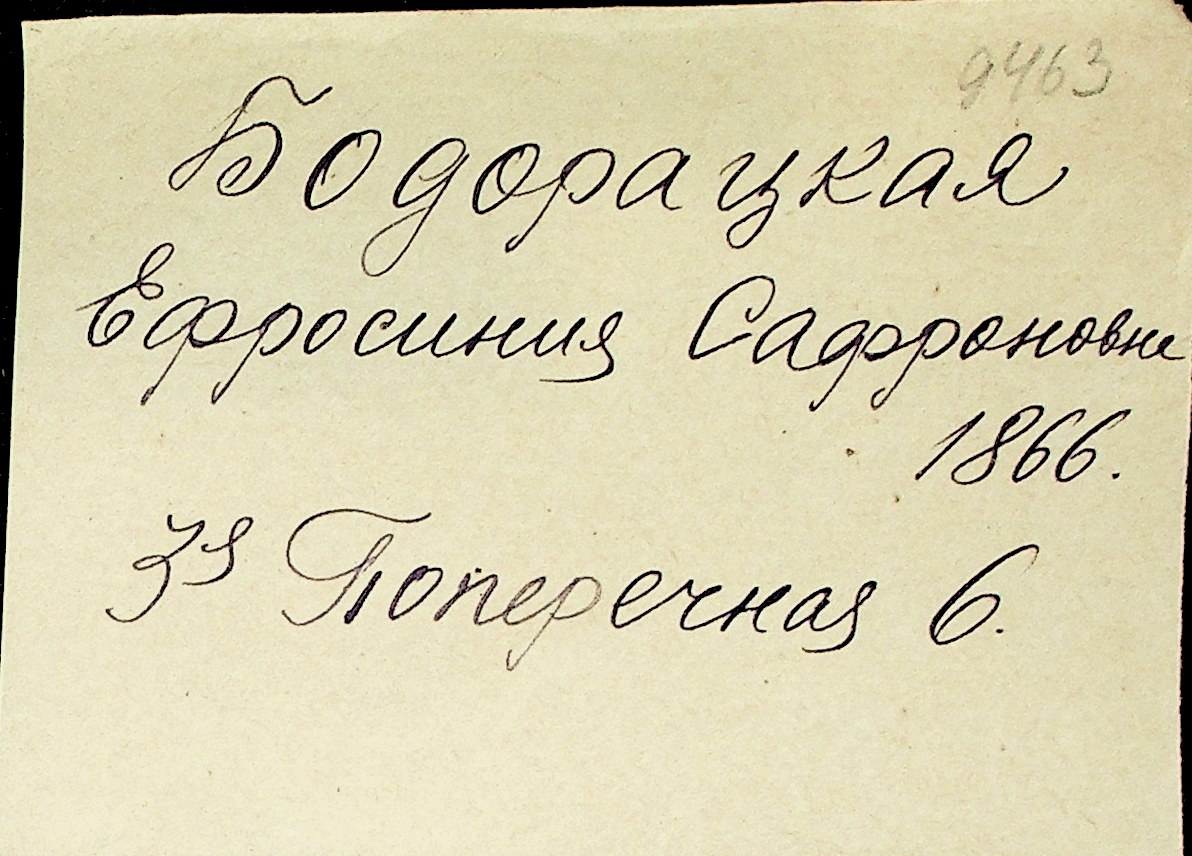 9463
Бодорацкая
Ефросиния Сафроновна
1866.
3я Поперечная 6.